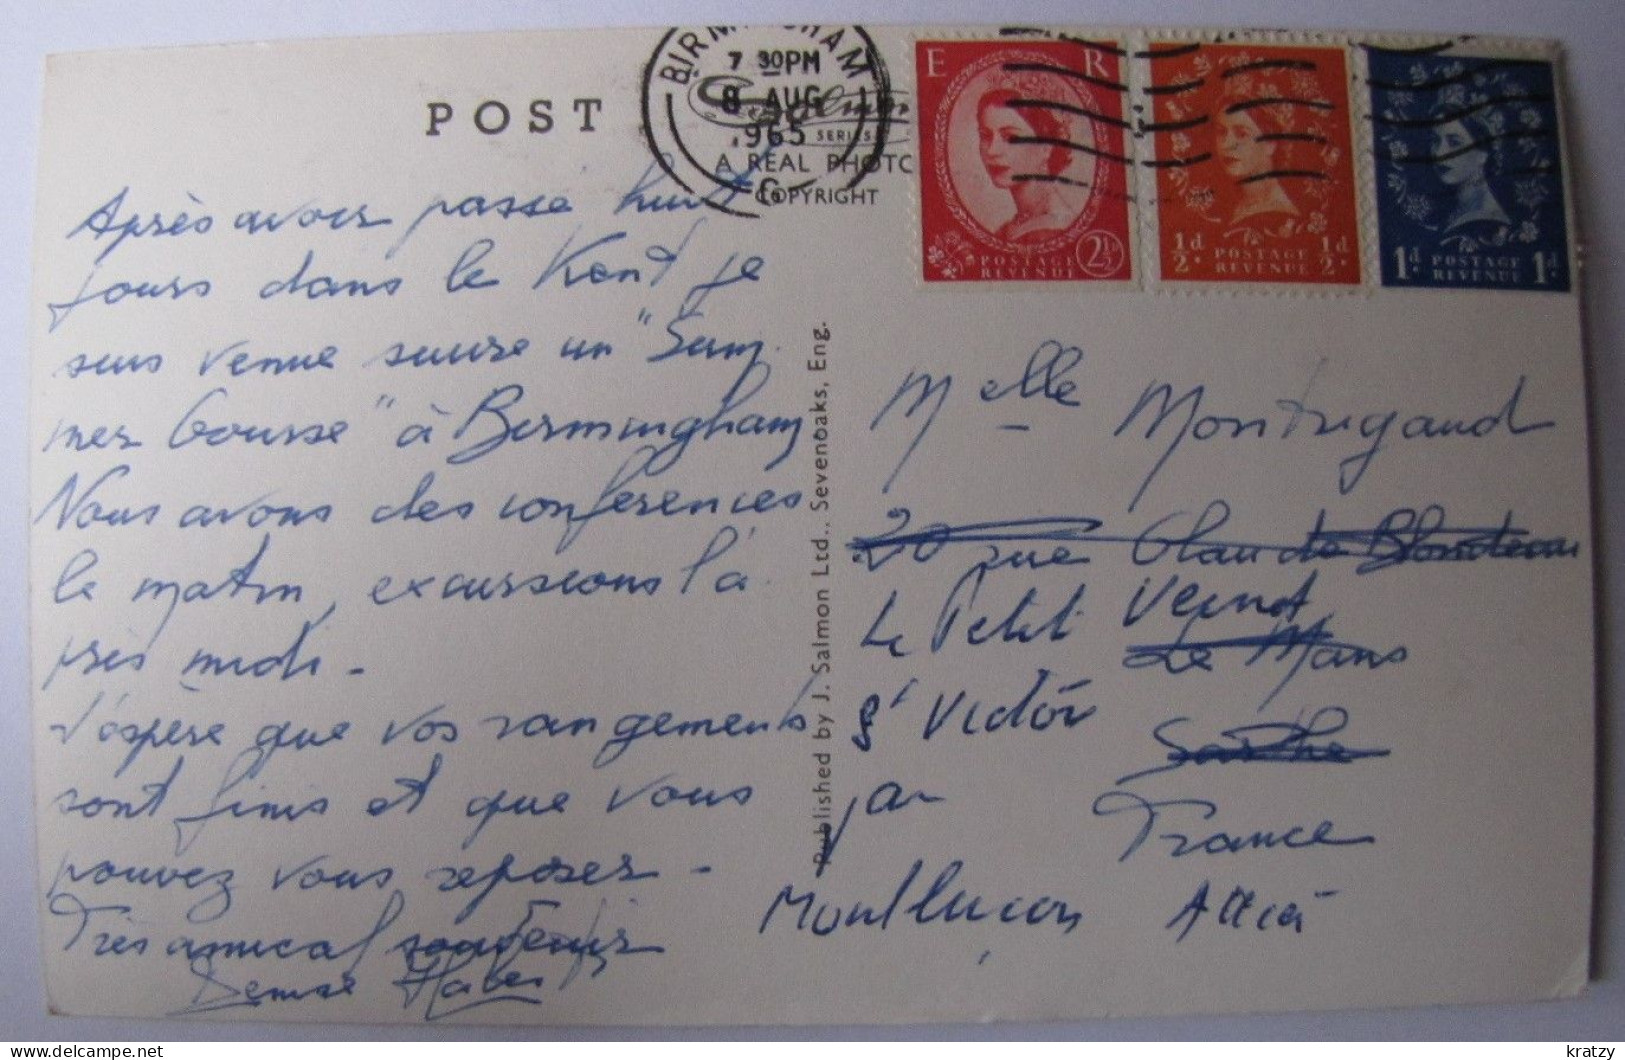 POST
BIRMINGHAM
7 30PM
8 AUG
1965
G
Salmon
SERIES
A REAL PHOTO
COPYRIGHT
E R
POSTAGE
REVENUE
2½
½d POSTAGE ½d
REVENUE
1d POSTAGE 1d
REVENUE
Après avoir passé huit
jours dans le Kent je
suis venue suivre un "Sum
mer Course" à Birmingham
Nous avons des conférences
le matin, excursions l'a
près midi -
J'espère que vos rangements
sont finis et que vous
pouvez vous reposer -
Très amical souvenir
Denise
Published by J. Salmon Ltd., Sevenoaks, Eng.
Melle Montrigaud
20 rue Claude Blondeau
Le Petit Vernet
Le Mans
St Victor
Sarthe
par
France
Montluçon Allier
kratzy